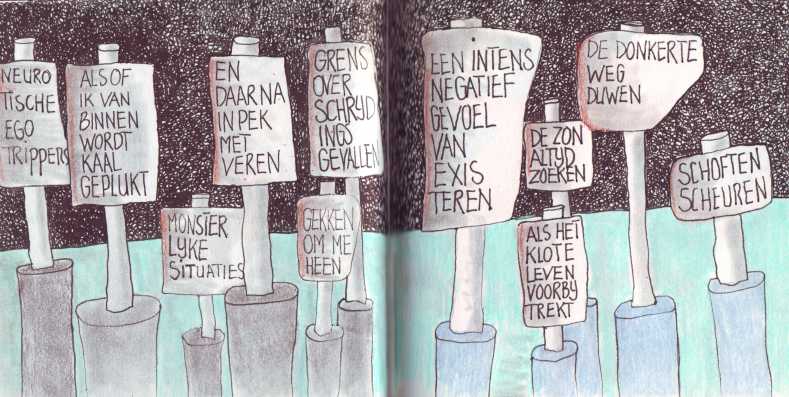 NEURO
TISCHE
EGO
TRIPPERS
ALSOF
IK VAN
BINNEN
WORDT
KAAL
GEPLUKT
EN
DAARNA
IN PEK
MET
VEREN
GRENS
OVER
SCHRYD
INGS
GEVALLEN
MONSTER
LYKE
SITUATIES
GEKKEN
OM ME
HEEN
EEN INTENS
NEGATIEF
GEVOEL
VAN
EXIS
TEREN
DE ZON
ALTYD
ZOEKEN
ALS HET
KLOTE
LEVEN
VOORBY
TREKT
DE DONKERTE
WEG
DUWEN
SCHOFTEN
SCHEUREN